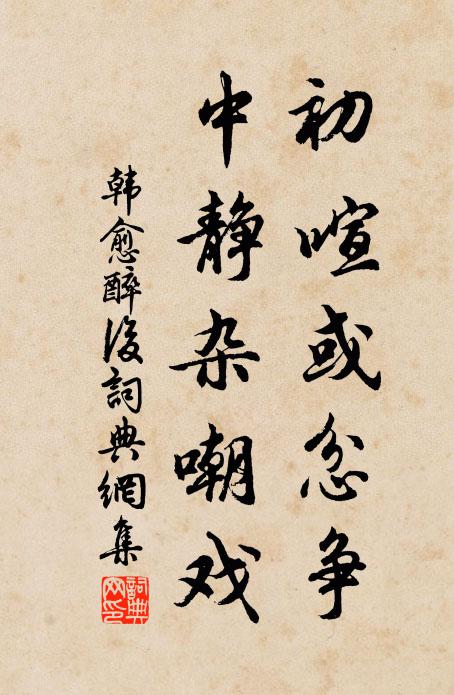 初喧或忿争
中静杂嘲戏
韩愈醉後詞典網集
詞典网印